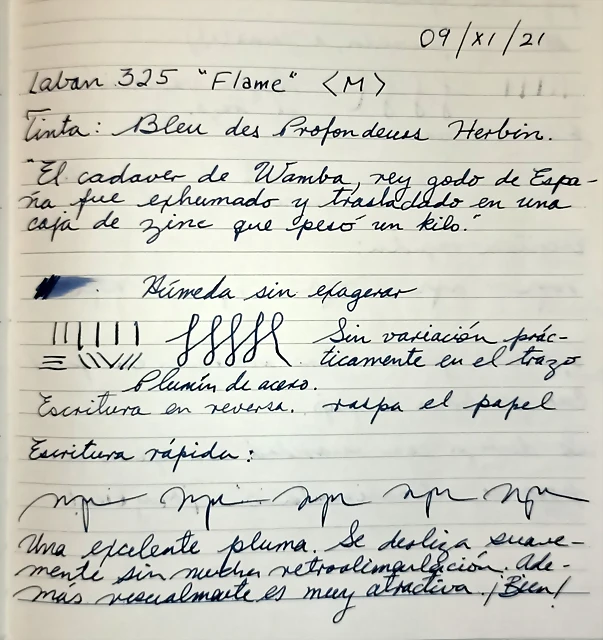 09/XI/21
Laban 325 "Flame" <M>
Tinta: Bleu des Profondeurs Herbin.
"El cadaver de Wamba, rey godo de Espa-
ña fue exhumado y trasladado en una
caja de zinc que pesó un kilo."
Húmeda sin exagerar
Sin variación prác-
ticamente en el trazo
Plumín de acero.
Escritura en reversa. raspa el papel
Escritura rápida:
Una excelente pluma. Se desliza suave-
mente sin mucha retroalimentación. Ade-
más visualmente es muy atractiva. ¡Bien!